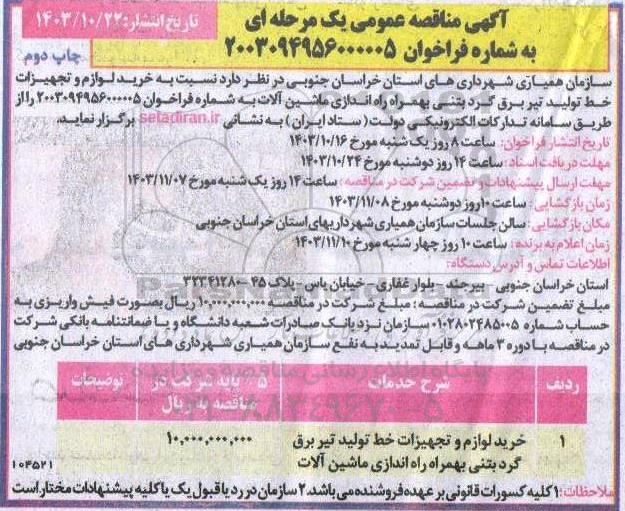 آگهی مناقصه عمومی یک مرحله ای
به شماره فراخوان ۲۰۰۳۰۹۴۹۵۶۰۰۰۰۰۵
تاریخ انتشار: ۱۴۰۳/۱۰/۲۲
چاپ دوم
سازمان همیاری شهرداری های استان خراسان جنوبی در نظر دارد نسبت به خرید لوازم و تجهیزات
خط تولید تیر برق گرد بتنی بهمراه راه اندازی ماشین آلات به شماره فراخوان ۲۰۰۳۰۹۴۹۵۶۰۰۰۰۰۵ را از
طریق سامانه تدارکات الکترونیکی دولت ( ستاد ایران ) به نشانی setadiran.ir برگزار نماید.
تاریخ انتشار فراخوان: ساعت ۸ روز یک شنبه مورخ ۱۴۰۳/۱۰/۱۶
مهلت دریافت اسناد: ساعت ۱۴ روز دوشنبه مورخ ۱۴۰۳/۱۰/۲۴
مهلت ارسال پیشنهادات و تضمین شرکت در مناقصه: ساعت ۱۴ روز یک شنبه مورخ ۱۴۰۳/۱۱/۰۷
زمان بازگشایی: ساعت ۱۰ روز دوشنبه مورخ ۱۴۰۳/۱۱/۰۸
مکان بازگشایی: سالن جلسات سازمان همیاری شهرداریهای استان خراسان جنوبی
زمان اعلام به برنده: ساعت ۱۰ روز چهار شنبه مورخ ۱۴۰۳/۱۱/۱۰
اطلاعات تماس و آدرس دستگاه:
استان خراسان جنوبی - بیرجند - بلوار غفاری - خیابان یاس - پلاک ۴۵ - ۳۲۳۴۱۲۸۰
مبلغ تضمین شرکت در مناقصه: مبلغ شرکت در مناقصه ۱۰,۰۰۰,۰۰۰,۰۰۰ ریال بصورت فیش واریزی به
حساب شماره ۰۱۰۲۸۰۲۴۸۵۰۰۵ سازمان نزد بانک صادرات شعبه دانشگاه و یا ضمانتنامه بانکی شرکت
در مناقصه با دوره ۳ ماهه و قابل تمدید به نفع سازمان همیاری شهرداری های استان خراسان جنوبی
ردیف شرح خدمات ۵٪ پایه شرکت در مناقصه به ریال توضیحات
۱ خرید لوازم و تجهیزات خط تولید تیر برق ۱۰,۰۰۰,۰۰۰,۰۰۰
گرد بتنی بهمراه راه اندازی ماشین آلات
۱۰۴۵۲۱
ملاحظات: ۱ کلیه کسورات قانونی بر عهده فروشنده می باشد. ۲ سازمان در رد یا قبول یک یا کلیه پیشنهادات مختار است